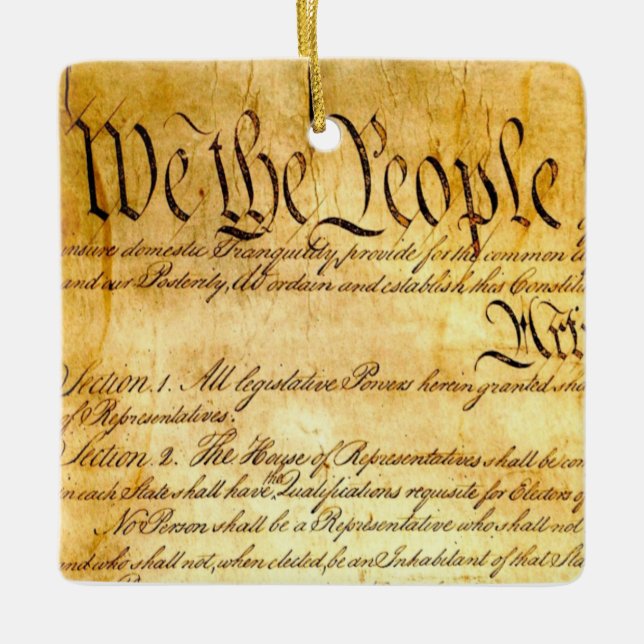 We the People
ensure domestic Tranquility, provide for the common
and our Posterity, do ordain and establish this Constitu
Arti
Section. 1. All legislative Powers herein granted sha
of Representatives.
Section. 2. The House of Representatives shall be com
in each State shall have the Qualifications requisite for Electors of
No Person shall be a Representative who shall not
and who shall not, when elected, be an Inhabitant of that Sta